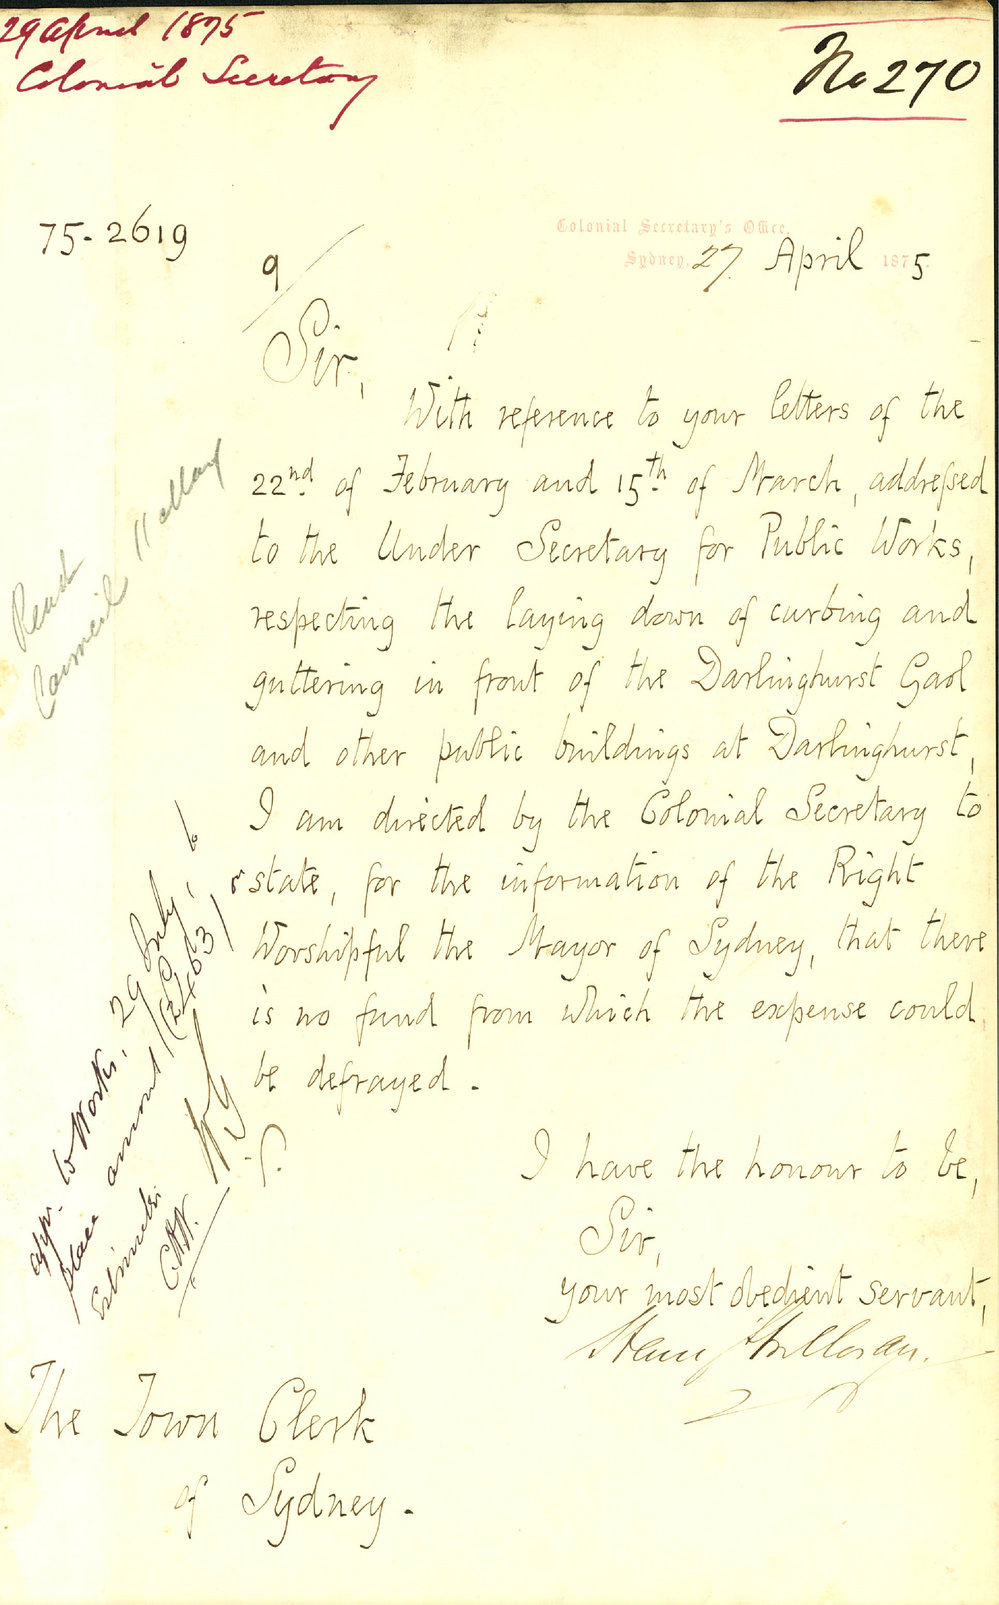 29 April 1875
Colonial Secretary
No 270
75-2619
Colonial Secretary's Office,
Sydney, 27 April 1875.
9/
Sir,
With reference to your letters of the
22nd of February and 15th of March, addressed
to the Under Secretary for Public Works,
respecting the laying down of curbing and
guttering in front of the Darlinghurst Gaol
and other public buildings at Darlinghurst,
I am directed by the Colonial Secretary to
state, for the information of the Right
Worshipful the Mayor of Sydney, that there
is no fund from which the expense could
be defrayed.
I have the honour to be,
Sir,
your most obedient servant,
Henry Halloran.
The Town Clerk
of Sydney.
Read
Council 11 May
to Works, 29 July, to
place amount
Estimates